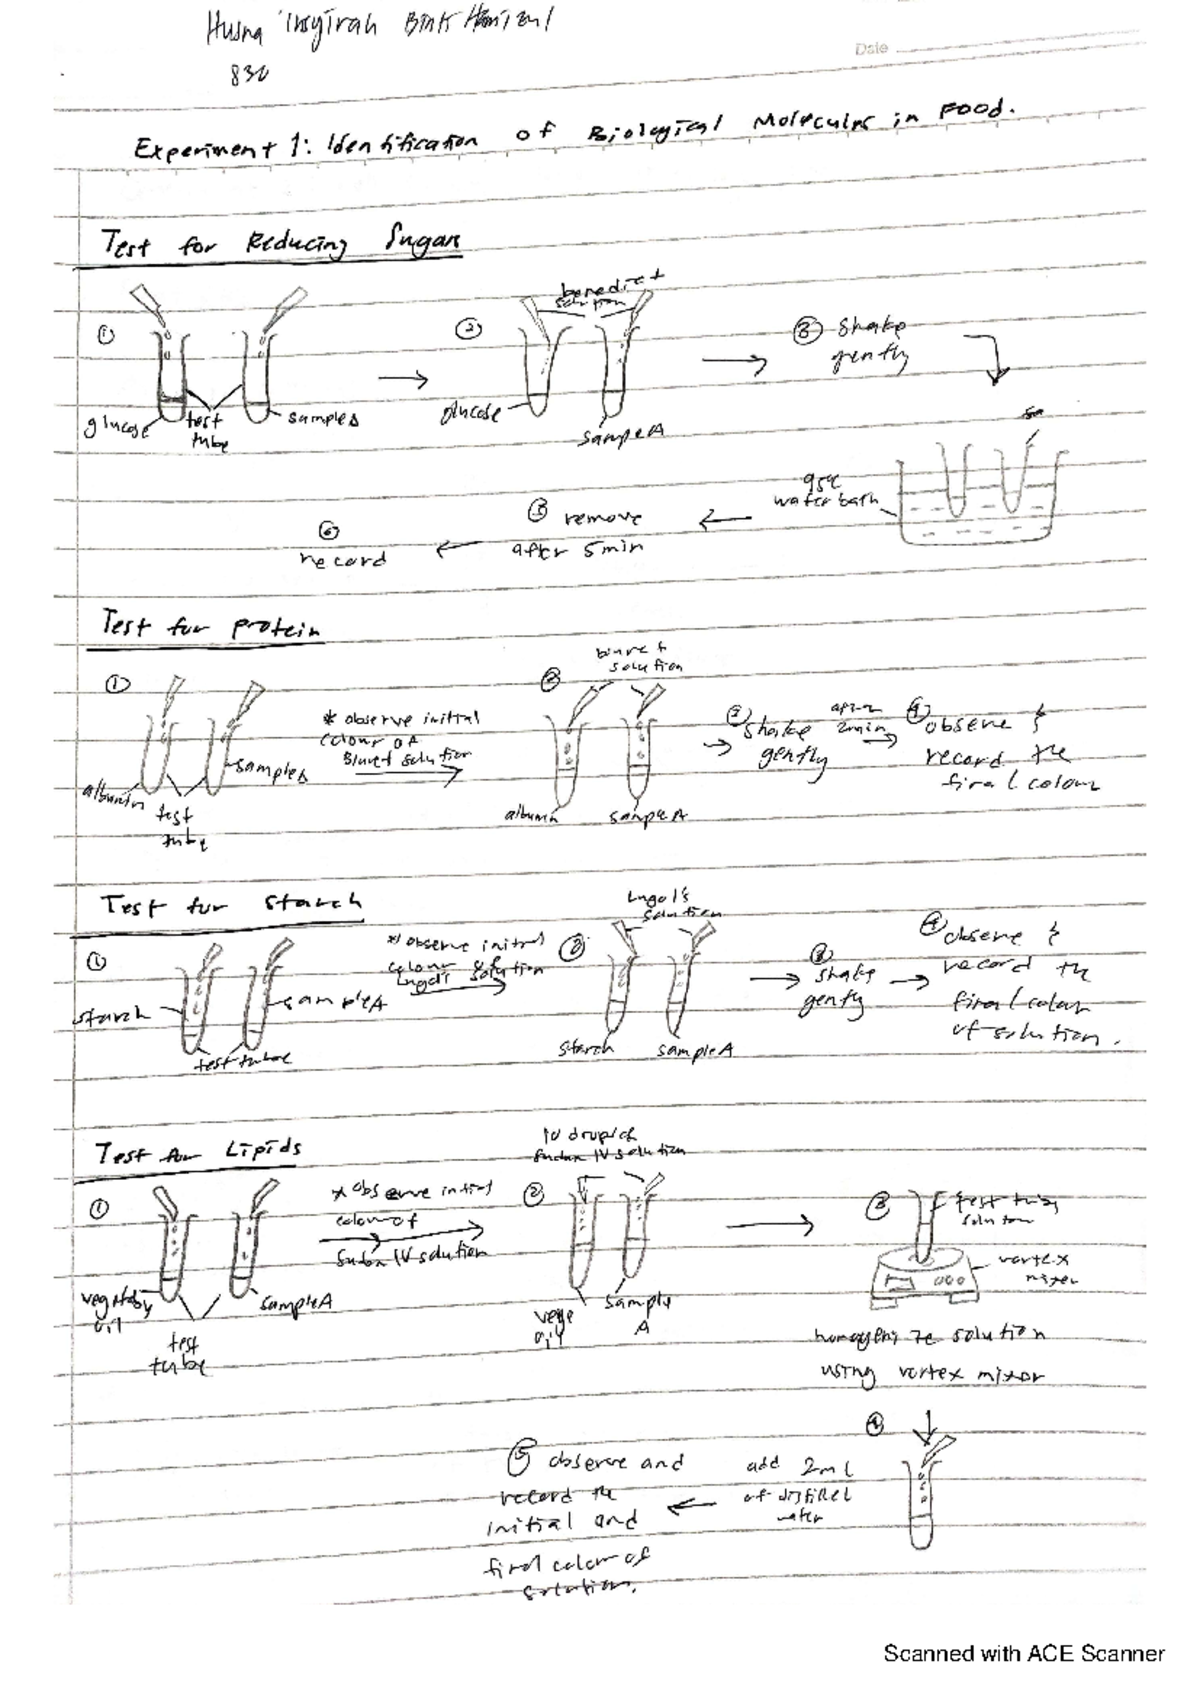 Husna Insyirah Bint
830
Date
Experiment 1: Identification of Biological Molecules in Food.
Test for Reducing Sugar
benedict
solution
① ② ③ shake
gently
glucose test
tube sample A
glucose
sample A
95°C
water bath
⑤ remove
after 5 min
⑥
record
Test for protein
biuret
solution
① ②
* observe initial
colour of
Biuret solution
albumin test
tube sample A
albumin sample A
③ shake
gently
2min
④ observe &
record the
final colour
Test for starch
Lugol's
solution
① ②
* observe initial
colour of
Lugol's solution
starch sample A
test tube
starch sample A
③
shake
gently
④ observe &
record the
final colour
of solution.
Test for Lipids
10 drop of
Sudan IV solution
① ②
* observe initial
colour of
Sudan IV solution
vegetable
oil
test
tube
sample A
vege
oil
sample
A
③ test tube
solution
vortex
mixer
homogenize solution
using vortex mixer
④
add 2ml
of distilled
water
⑤ observe and
record the
initial and
final color of
solution.
Scanned with ACE Scanner